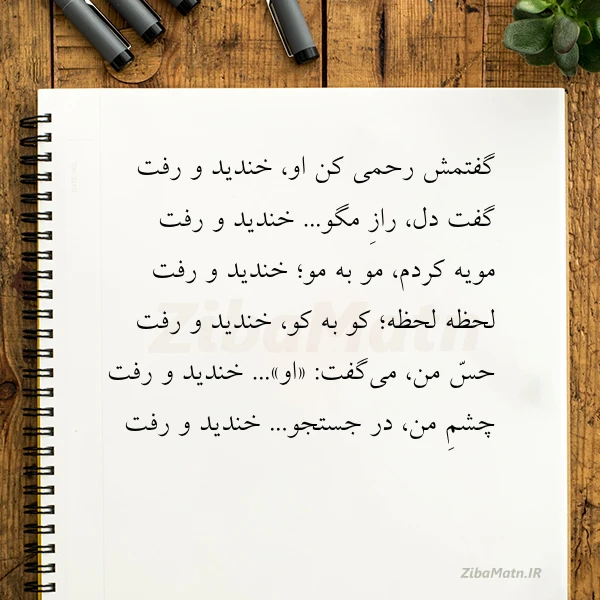 گفتمش رحمی کن او، خندید و رفت
گفت دل، رازِ مگو... خندید و رفت
مویه کردم، مو به مو؛ خندید و رفت
لحظه لحظه؛ کو به کو، خندید و رفت
حسّ من، می‌گفت: «او»... خندید و رفت
چشمِ من، در جستجو... خندید و رفت
ZibaMatn
ZibaMatn.IR